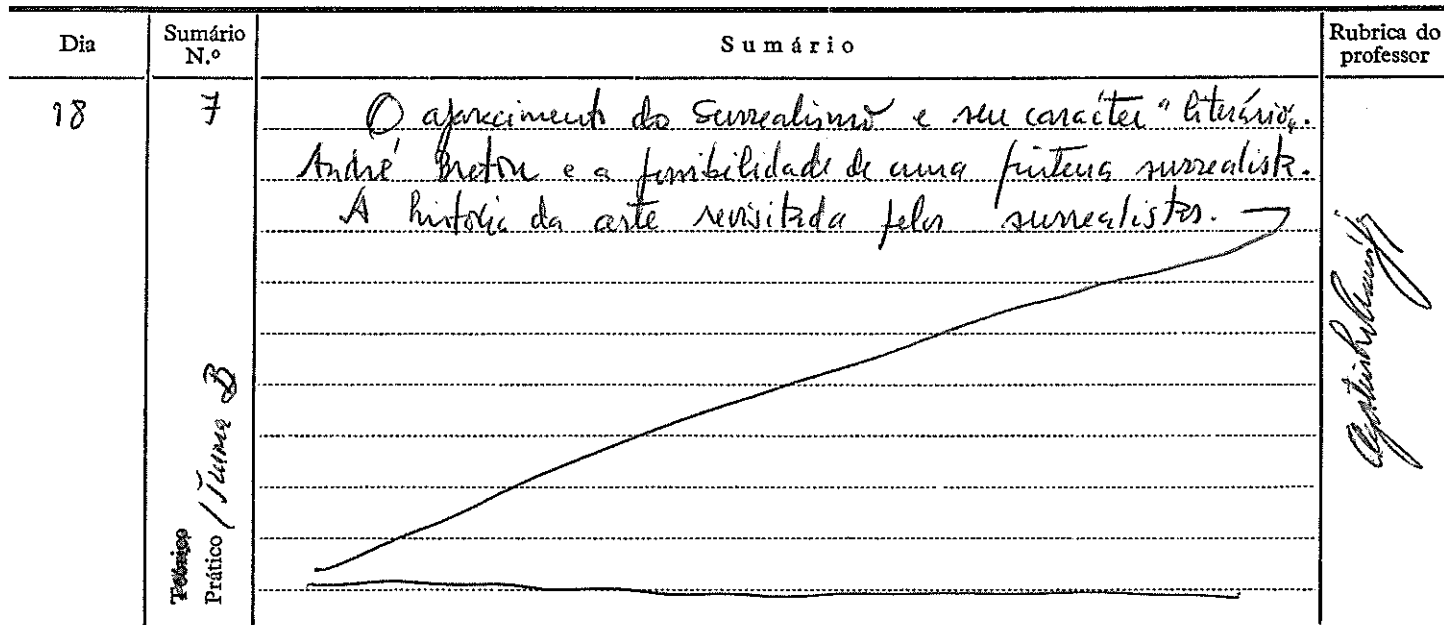 Dia
Sumário N.º
Sumário
Rubrica do professor
18
7
O aparecimento do Surrealismo e seu carácter "literário".
André Breton e a possibilidade de uma pintura surrealista.
A história da arte revisitada pelos surrealistas.
Teórico
Prático / Turma B